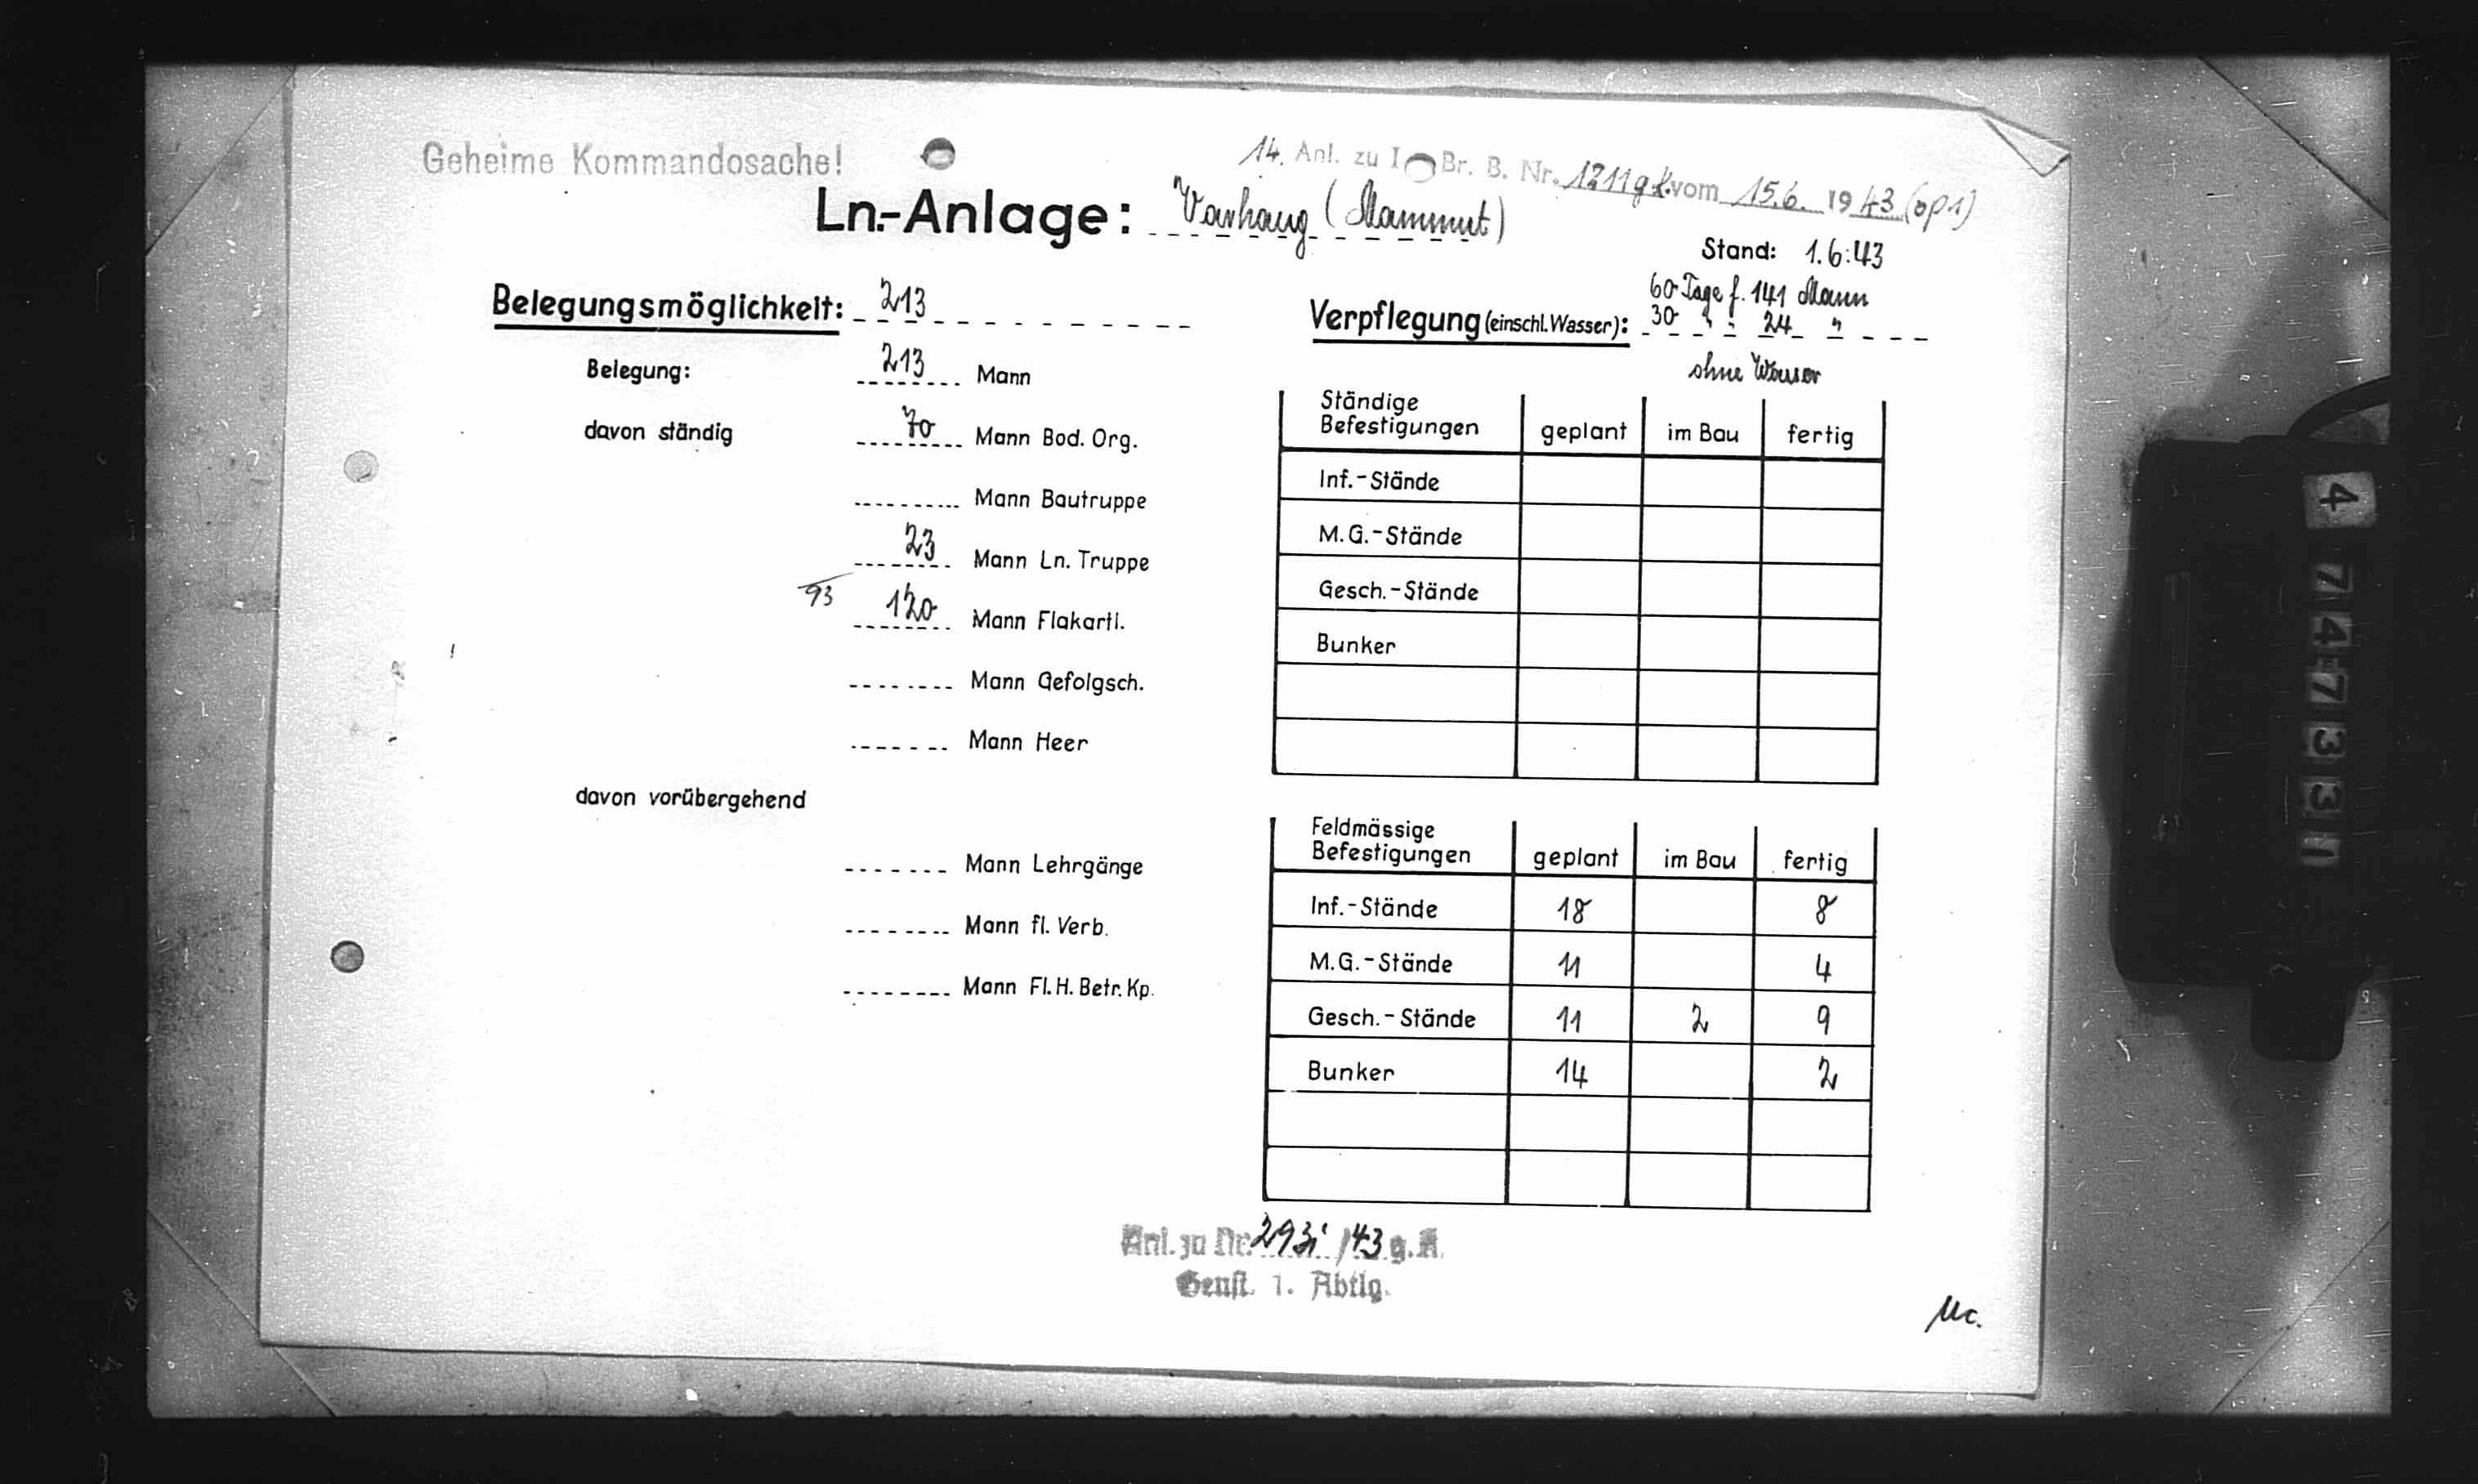 Geheime Kommandosache!
14. Anl. zu I Br. B. Nr. 1211 g.K. vom 15.6. 1943 (op1)
Ln.-Anlage: Varhaug (Mammut)
Stand: 1.6.43
Belegungsmöglichkeit: 213
Belegung: 213 Mann
davon ständig 70 Mann Bod. Org.
Mann Bautruppe
23 Mann Ln. Truppe
93 120 Mann Flakartl.
Mann Gefolgsch.
Mann Heer
davon vorübergehend
Mann Lehrgänge
Mann fl. Verb.
Mann Fl. H. Betr. Kp.
60 Tage f. 141 Mann
Verpflegung (einschl. Wasser): 30 " " 24 "
ohne Wasser
Ständige Befestigungen geplant im Bau fertig
Inf.-Stände
M.G.-Stände
Gesch.-Stände
Bunker
Feldmässige Befestigungen geplant im Bau fertig
Inf.-Stände 18 8
M.G.-Stände 11 4
Gesch.-Stände 11 2 9
Bunker 14 2
Anl. zu Nr. 293i /43 g.K.
Genst. 1. Abtlg.
4747331